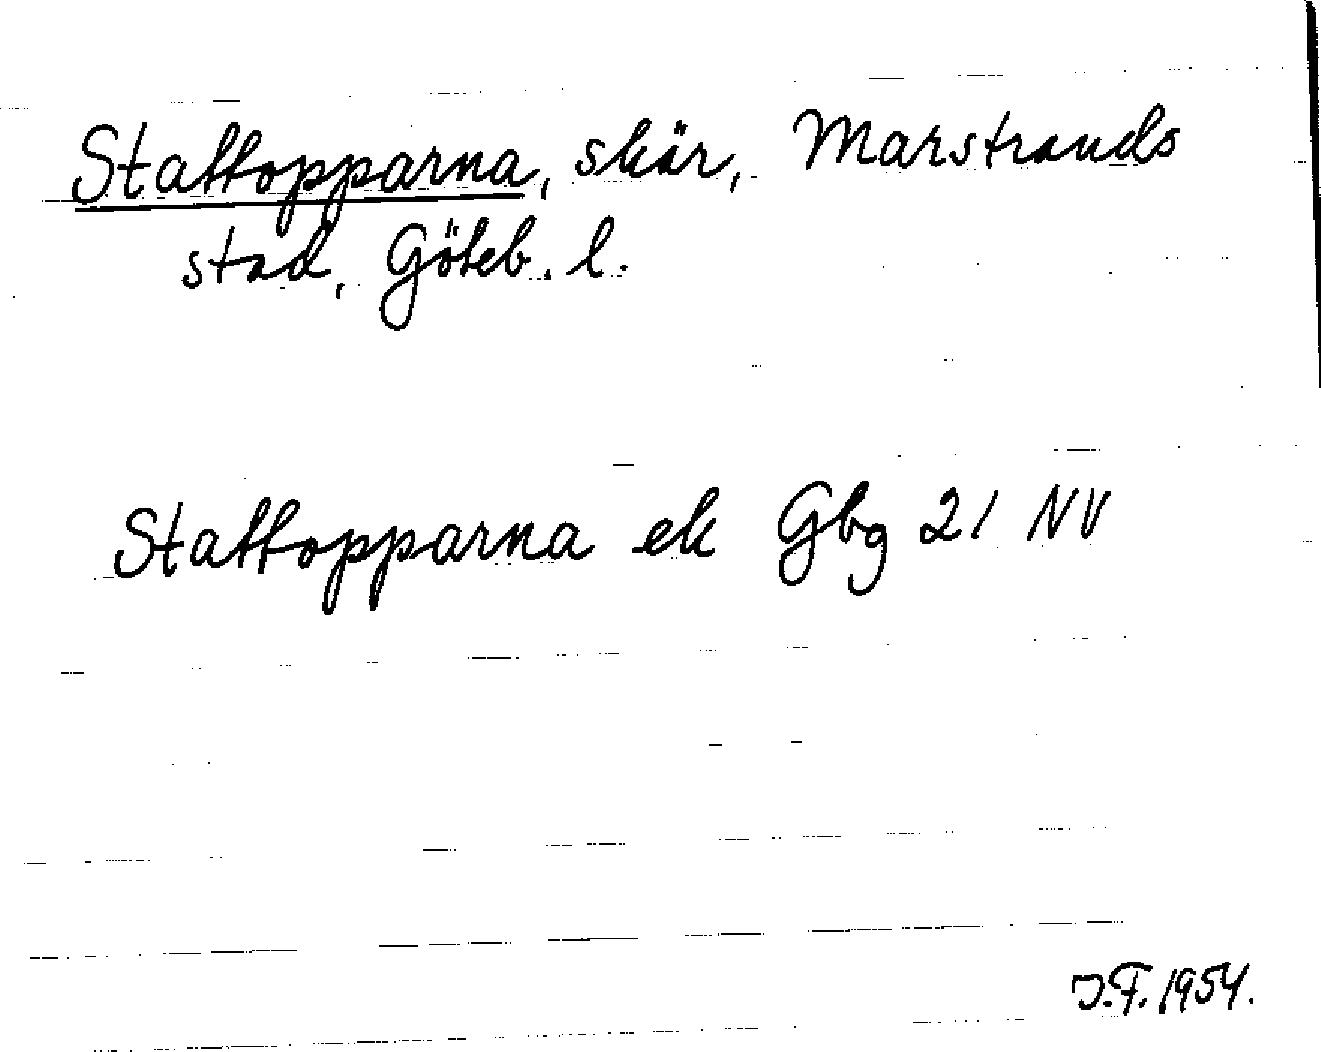 Stattopparna, skär, Marstrands
stad, Göteb. l.
Stattopparna ek Gbg 21 NV
J.F. 1954.